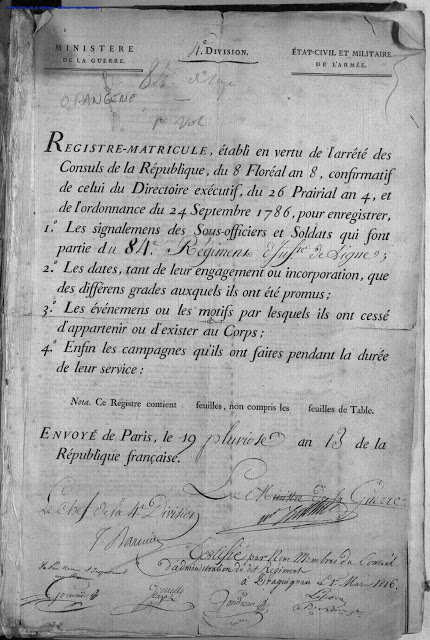 MINISTÈRE
DE LA GUERRE.
4.e DIVISION.
ÉTAT-CIVIL ET MILITAIRE
DE L'ARMÉE.
ORANGERIE
1er Vol
REGISTRE-MATRICULE, établi en vertu de l'arrêté des
Consuls de la République, du 8 Floréal an 8, confirmatif
de celui du Directoire exécutif, du 26 Prairial an 4, et
de l'ordonnance du 24 Septembre 1786, pour enregistrer,
1.º Les signalemens des Sous-officiers et Soldats qui font
partie du 84.e Régiment d'Infrie de Ligne;
2.º Les dates, tant de leur engagement ou incorporation, que
des différens grades auxquels ils ont été promus;
3.º Les événemens ou les motifs par lesquels ils ont cessé
d'appartenir ou d'exister au Corps;
4.º Enfin les campagnes qu'ils ont faites pendant la durée
de leur service:
Nota. Ce Registre contient feuilles, non compris les feuilles de Table.
ENVOYÉ de Paris, le 19 pluviose an 13 de la
République française.
Le Ministre de la Guerre
Le Chef de la 4e Division
Certifié par Nous Membres du Conseil
d'administration du dit Régiment
à Draguignan le 1er Mai 1816.